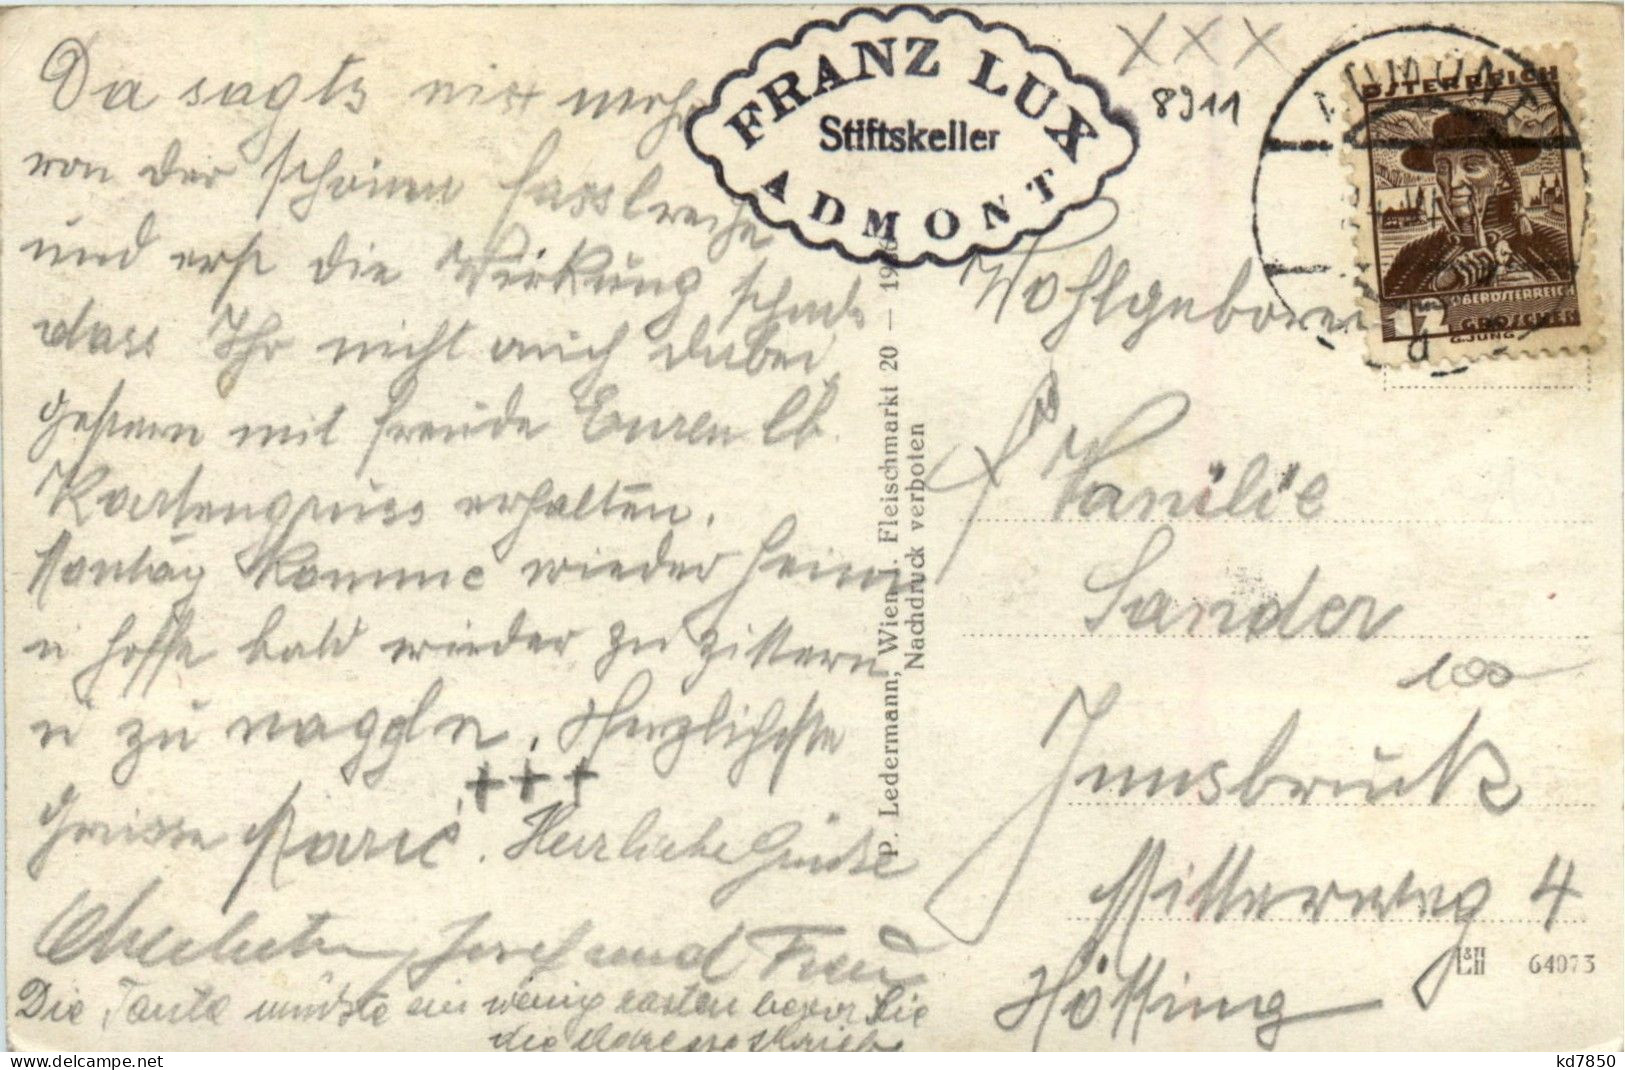 Da sagts nix mehr
von der schönen Fassl
und erst die Wirkung schade
dass Ihr nicht auch dabei,
gestern mit Freude Euren lb.
Kartengruss erhalten.
Montag komme wieder heim
u hoffe bald wieder zu zittern
u zu nageln. Herzlichste
+++
Grüsse Marie. Herzliche Grüße
Josef und Frau
Die Tante müßte ein wenig rasten bevor Sie
die Adresse schrieb
P. Ledermann, Wien I. Fleischmarkt 20 — 19
Nachdruck verboten
FRANZ LUX
Stiftskeller
ADMONT
XXX
8911
ADMONT
ÖSTERREICH
OBERÖSTERREICH
12 GROSCHEN
G. JUNG
Wohlgeboren
Familie
Sander
100
Innsbruck
Mitterweg 4
Hötting
64073
www.delcampe.net
kd7850